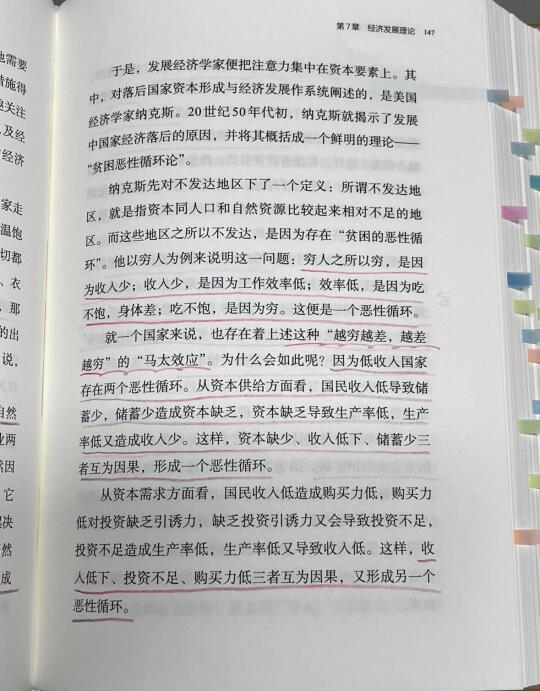 第7章 经济发展理论 147
于是，发展经济学家便把注意力集中在资本要素上。其
中，对落后国家资本形成与经济发展作系统阐述的，是美国
经济学家纳克斯。20世纪50年代初，纳克斯就揭示了发展
中国家经济落后的原因，并将其概括成一个鲜明的理论——
“贫困恶性循环论”。
纳克斯先对不发达地区下了一个定义：所谓不发达地
区，就是指资本同人口和自然资源比较起来相对不足的地
区。而这些地区之所以不发达，是因为存在“贫困的恶性循
环”。他以穷人为例来说明这一问题：穷人之所以穷，是因
为收入少；收入少，是因为工作效率低；效率低，是因为吃
不饱，身体差；吃不饱，是因为穷。这便是一个恶性循环。
就一个国家来说，也存在着上述这种“越穷越差，越差
越穷”的“马太效应”。为什么会如此呢？因为低收入国家
存在两个恶性循环。从资本供给方面看，国民收入低导致储
蓄少，储蓄少造成资本缺乏，资本缺乏导致生产率低，生产
率低又造成收入少。这样，资本缺少、收入低下、储蓄少三
者互为因果，形成一个恶性循环。
从资本需求方面看，国民收入低造成购买力低，购买力
低对投资缺乏引诱力，缺乏投资引诱力又会导致投资不足，
投资不足造成生产率低，生产率低又导致收入低。这样，收
入低下、投资不足、购买力低三者互为因果，又形成另一个
恶性循环。
地需要
措施得
及经
经济
家走
温饱
切都
、衣
，那
的出
说，
自然
业两
因
。它
决
然
成